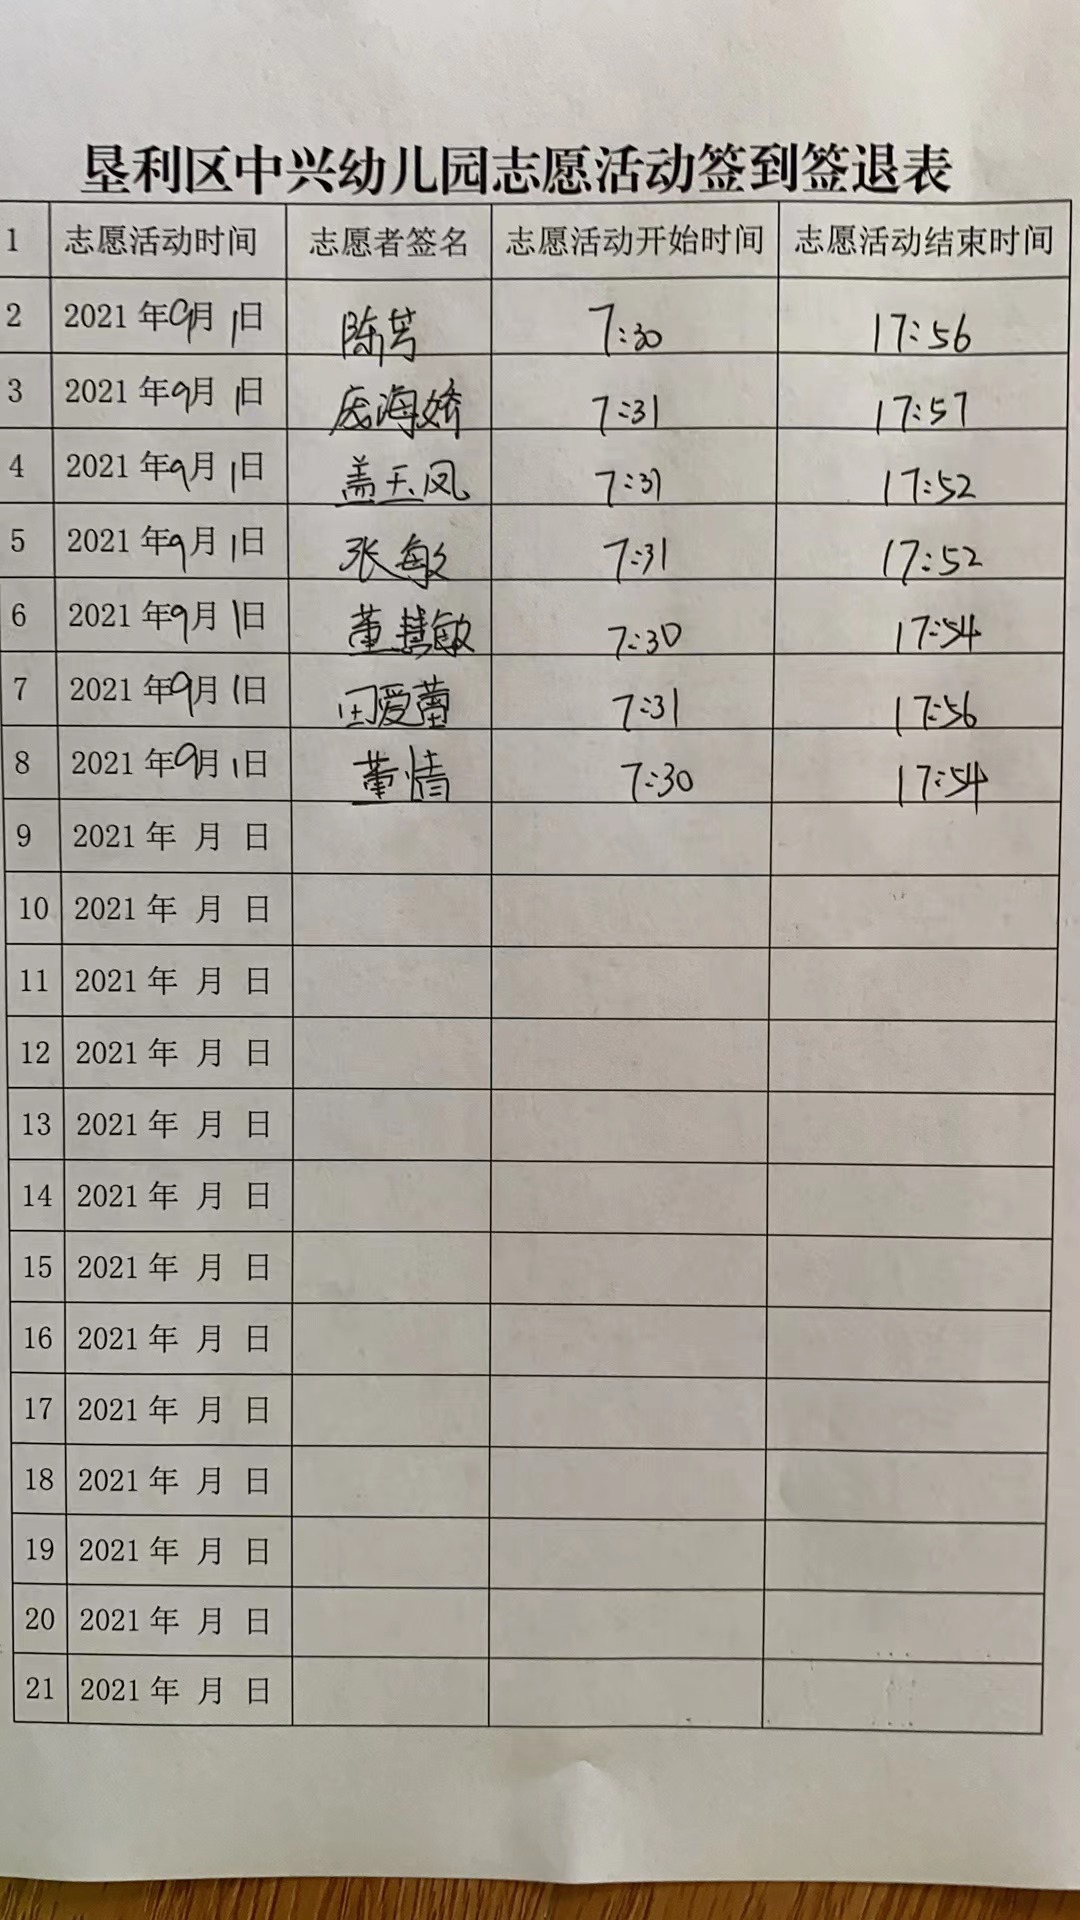 垦利区中兴幼儿园志愿活动签到签退表
1 志愿活动时间 志愿者签名 志愿活动开始时间 志愿活动结束时间
2 2021年9月1日 陈芳 7:30 17:56
3 2021年9月1日 庞海娇 7:31 17:57
4 2021年9月1日 盖玉凤 7:31 17:52
5 2021年9月1日 张敏 7:31 17:52
6 2021年9月1日 董慧敏 7:30 17:54
7 2021年9月1日 田爱蕾 7:31 17:56
8 2021年9月1日 董情 7:30 17:54
9 2021年 月 日
10 2021年 月 日
11 2021年 月 日
12 2021年 月 日
13 2021年 月 日
14 2021年 月 日
15 2021年 月 日
16 2021年 月 日
17 2021年 月 日
18 2021年 月 日
19 2021年 月 日
20 2021年 月 日
21 2021年 月 日